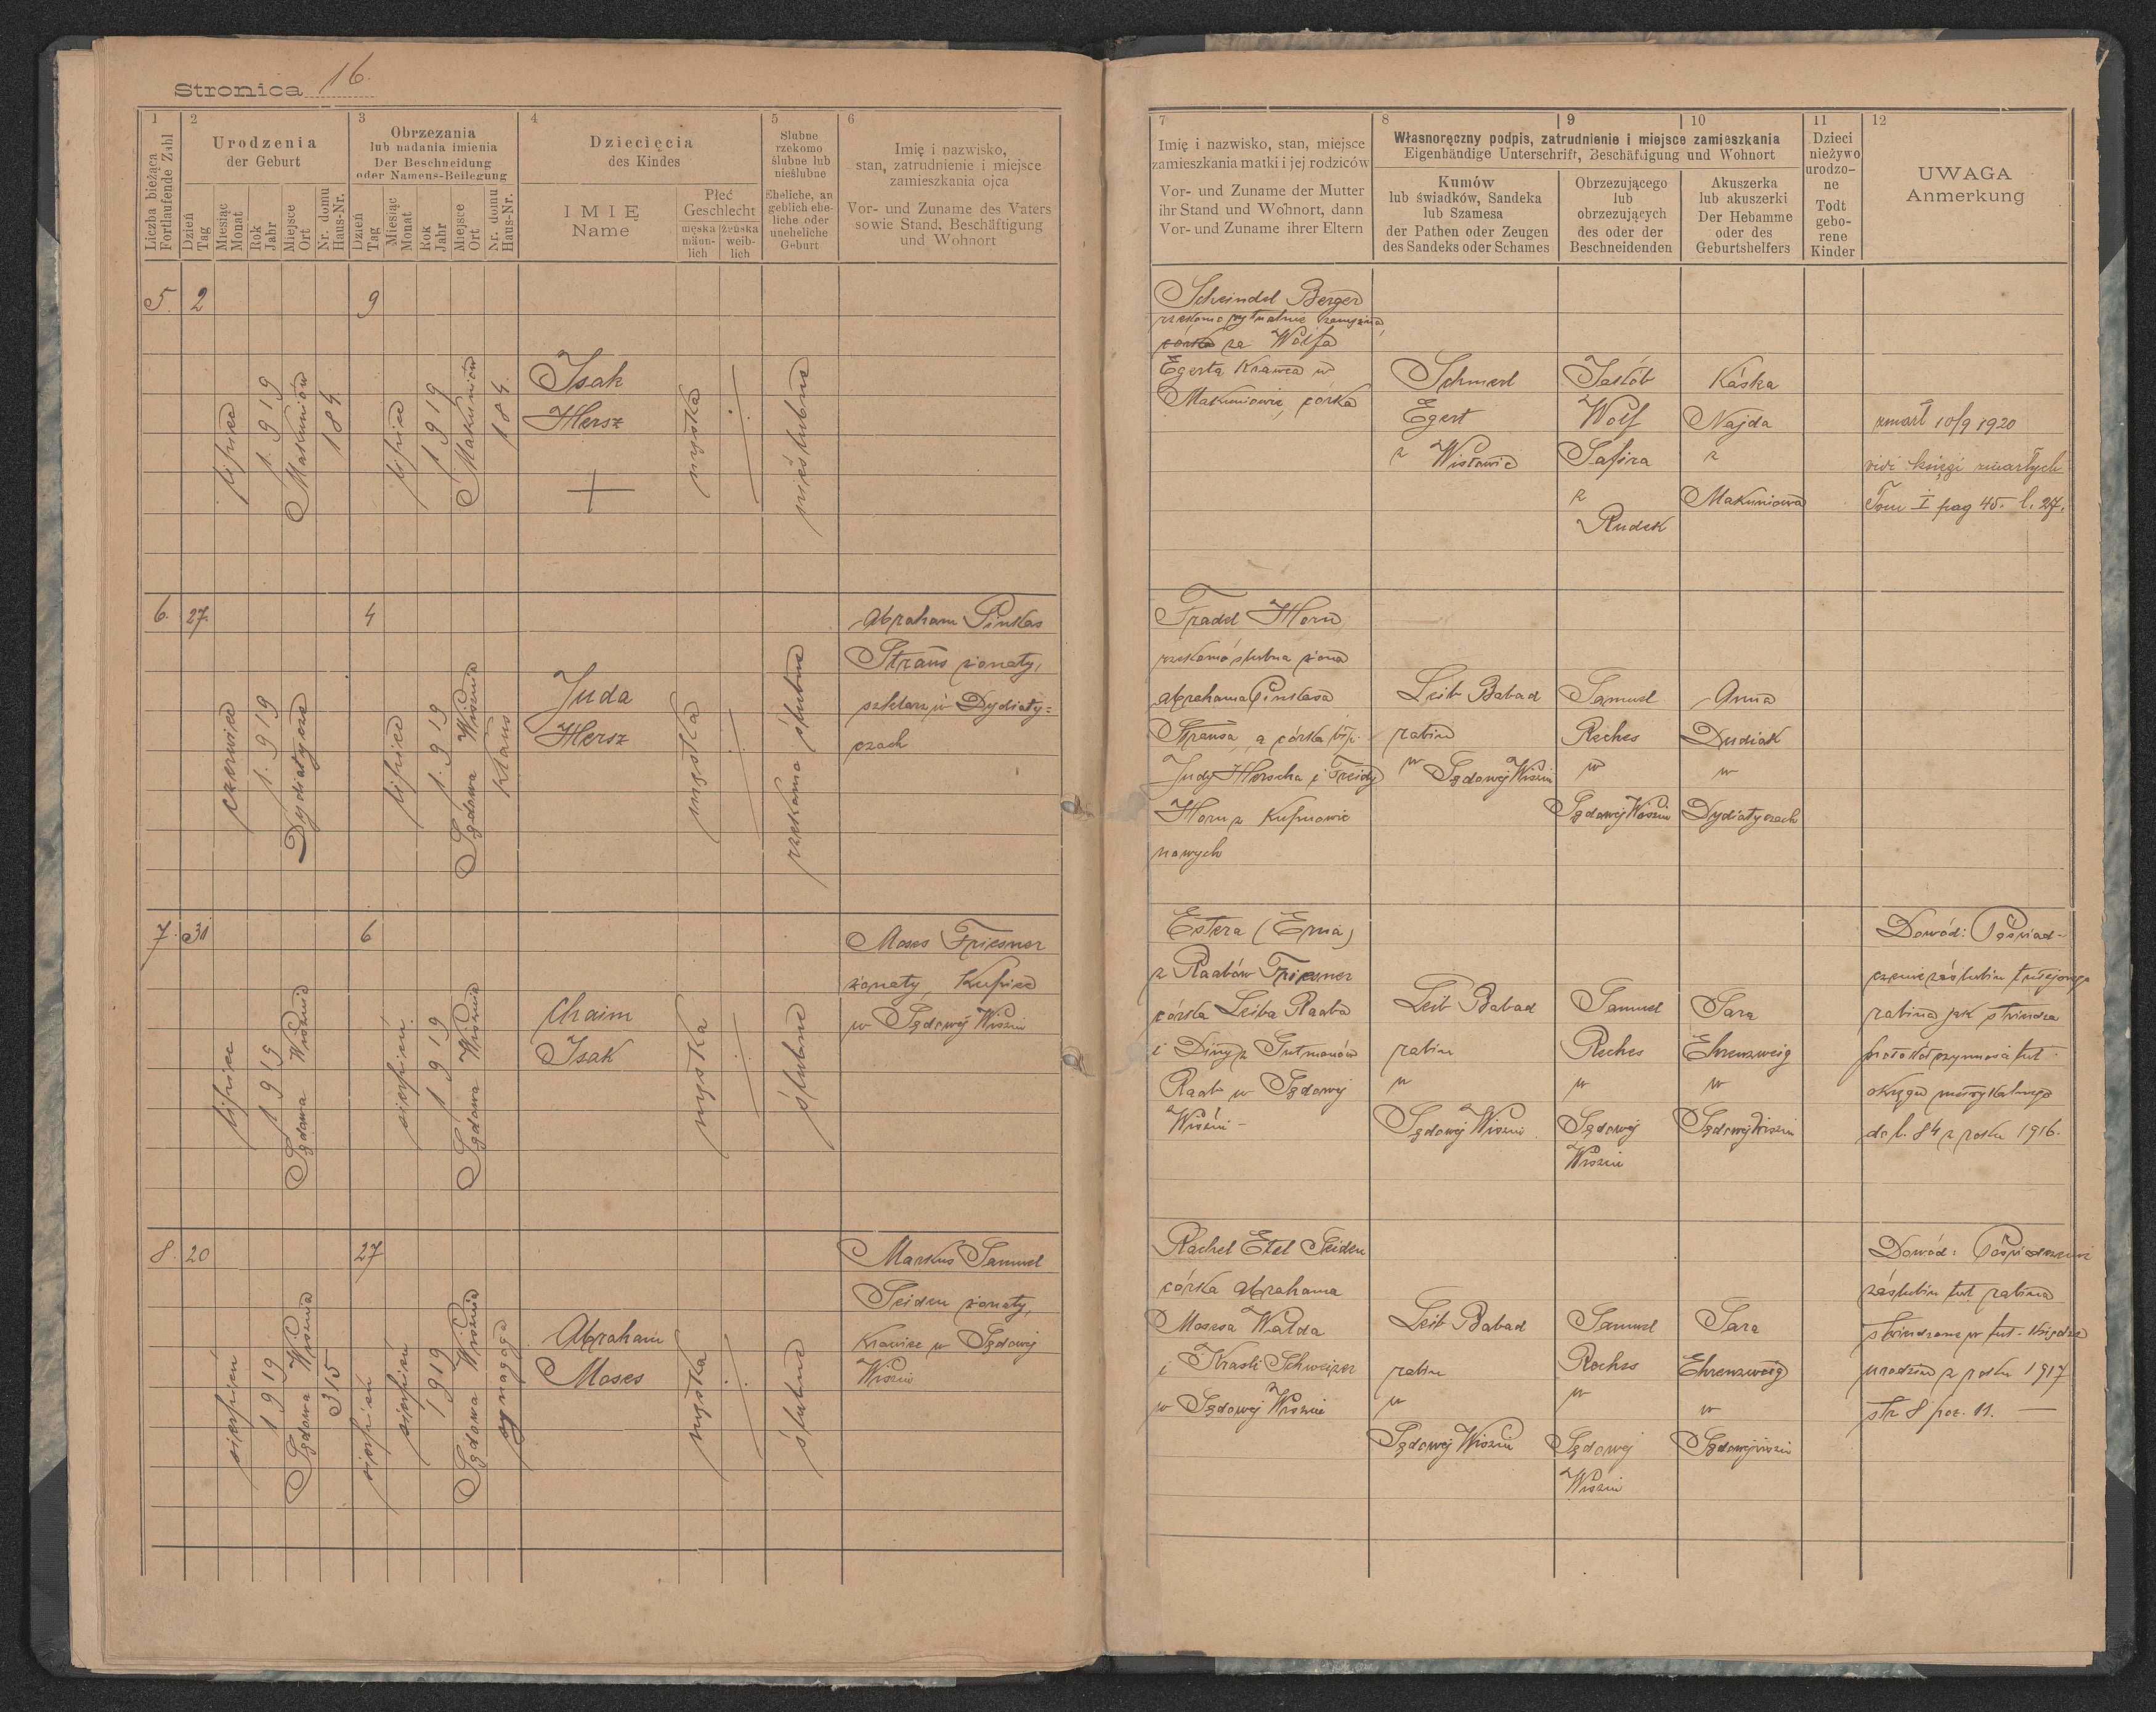 Stronica 16.
1
Liczba bieżąca
Fortlaufende Zahl
2
Urodzenia
der Geburt
Dzień
Tag
Miesiąc
Monat
Rok
Jahr
Miejsce
Ort
Nr. domu
Haus-Nr.
3
Obrzezania
lub nadania imienia
Der Beschneidung
oder Namens-Beilegung
Dzień
Tag
Miesiąc
Monat
Rok
Jahr
Miejsce
Ort
Nr. domu
Haus-Nr.
4
Dziecięcia
des Kindes
IMIĘ
Name
Płeć
Geschlecht
męska
männ-
lich
żeńska
weib-
lich
5
Ślubne
rzekomo
ślubne lub
nieślubne
Eheliche, an
geblich ehe-
liche oder
uneheliche
Geburt
6
Imię i nazwisko,
stan, zatrudnienie i miejsce
zamieszkania ojca
Vor- und Zuname des Vaters
sowie Stand, Beschäftigung
und Wohnort
7
Imię i nazwisko, stan, miejsce
zamieszkania matki i jej rodziców
Vor- und Zuname der Mutter
ihr Stand und Wohnort, dann
Vor- und Zuname ihrer Eltern
8
9
10
Własnoręczny podpis, zatrudnienie i miejsce zamieszkania
Eigenhändige Unterschrift, Beschäftigung und Wohnort
Kumów
lub świadków, Sandeka
lub Szamesa
der Pathen oder Zeugen
des Sandeks oder Schames
Obrzezującego
lub
obrzezujących
des oder der
Beschneidenden
Akuszerka
lub akuszerki
Der Hebamme
oder des
Geburtshelfers
11
Dzieci
nieżywo
urodzo-
ne
Todt
gebo-
rene
Kinder
12
UWAGA
Anmerkung
5.
2
lipiec
1.919
Makuniów
184
9
lipiec
1919
Makuniów
184.
Isak
Hersz
męska
nieślubne
Scheindel Berger
rzekomo rytualnie
córka za Wolfa
Egerta Krawca w
Makuniowie, córka
Schmerl
Egert
z Wisłowic
Jakób
Wolf
Safira
z
Rudek
Kaśka
Najda
z
Makuniowa
zmarł 10/9 1920
vidi księgi zmarłych
Tom I pag 45. l. 27.
6.
27.
czerwiec
1.919
Dydiatycze
4
lipiec
1.919
Sądowa Wisznia
Klaus
Juda
Hersz
męska
rzekomo ślubne
Abraham Pinkas
Straus żonaty,
szklarz w Dydiaty=
czach
Fradel Horn
rzekomo ślubna żona
Abrahama Pinkasa
Strausa, a córka
Judy Herscha i Freidy
Horn z Kupnowic
nowych
Leib Babad
rabin
w Sądowej Wiszni
Samuel
Reches
w
Sądowej Wiszni
Anna
Dudiak
w
Dydiatyczach
7.
31
lipiec
1919
Sądowa Wisznia
6
sierpień
1919
Sądowa Wisznia
Chaim
Isak
męska
ślubne
Moses Friesner
żonaty, Kupiec
w Sądowej Wiszni
Estera (Erna)
z Raabów Friesner
córka Leiba Raaba
i Diny z Gutmanów
Raab w Sądowej
Wiszni -
Leib Babad
rabin
w
Sądowej Wiszni
Samuel
Reches
w
Sądowej
Wiszni
Sara
Ehrenzweig
w
Sądowej Wiszni
Dowód: Poświad-
czenie zaślubin tutejszego
rabina jak stwierdza
protokół przynosi tut.
okręgu metrykalnego
do l. 84 z roku 1916.
8.
20
sierpień
1919
Sądowa Wisznia
315
27
sierpień
sierpień
1919
Sądowa Wisznia
synagoga
Abraham
Moses
męska
ślubne
Markus Samuel
Seiden żonaty,
Krawiec w Sądowej
Wiszni
Rachel Etel Seiden
córka Abrahama
Mosesa Walda
i Krasli Schweizer
w Sądowej Wiszni
Leib Babad
rabin
w
Sądowej Wiszni
Samuel
Reches
w
Sądowej
Wiszni
Sara
Ehrenzweig
w
Sądowej Wiszni
Dowód: Poświadczenie
zaślubin tut rabina
stwierdzone w tut. Księdze
urodzin z roku 1917
str 8 poz. 11.